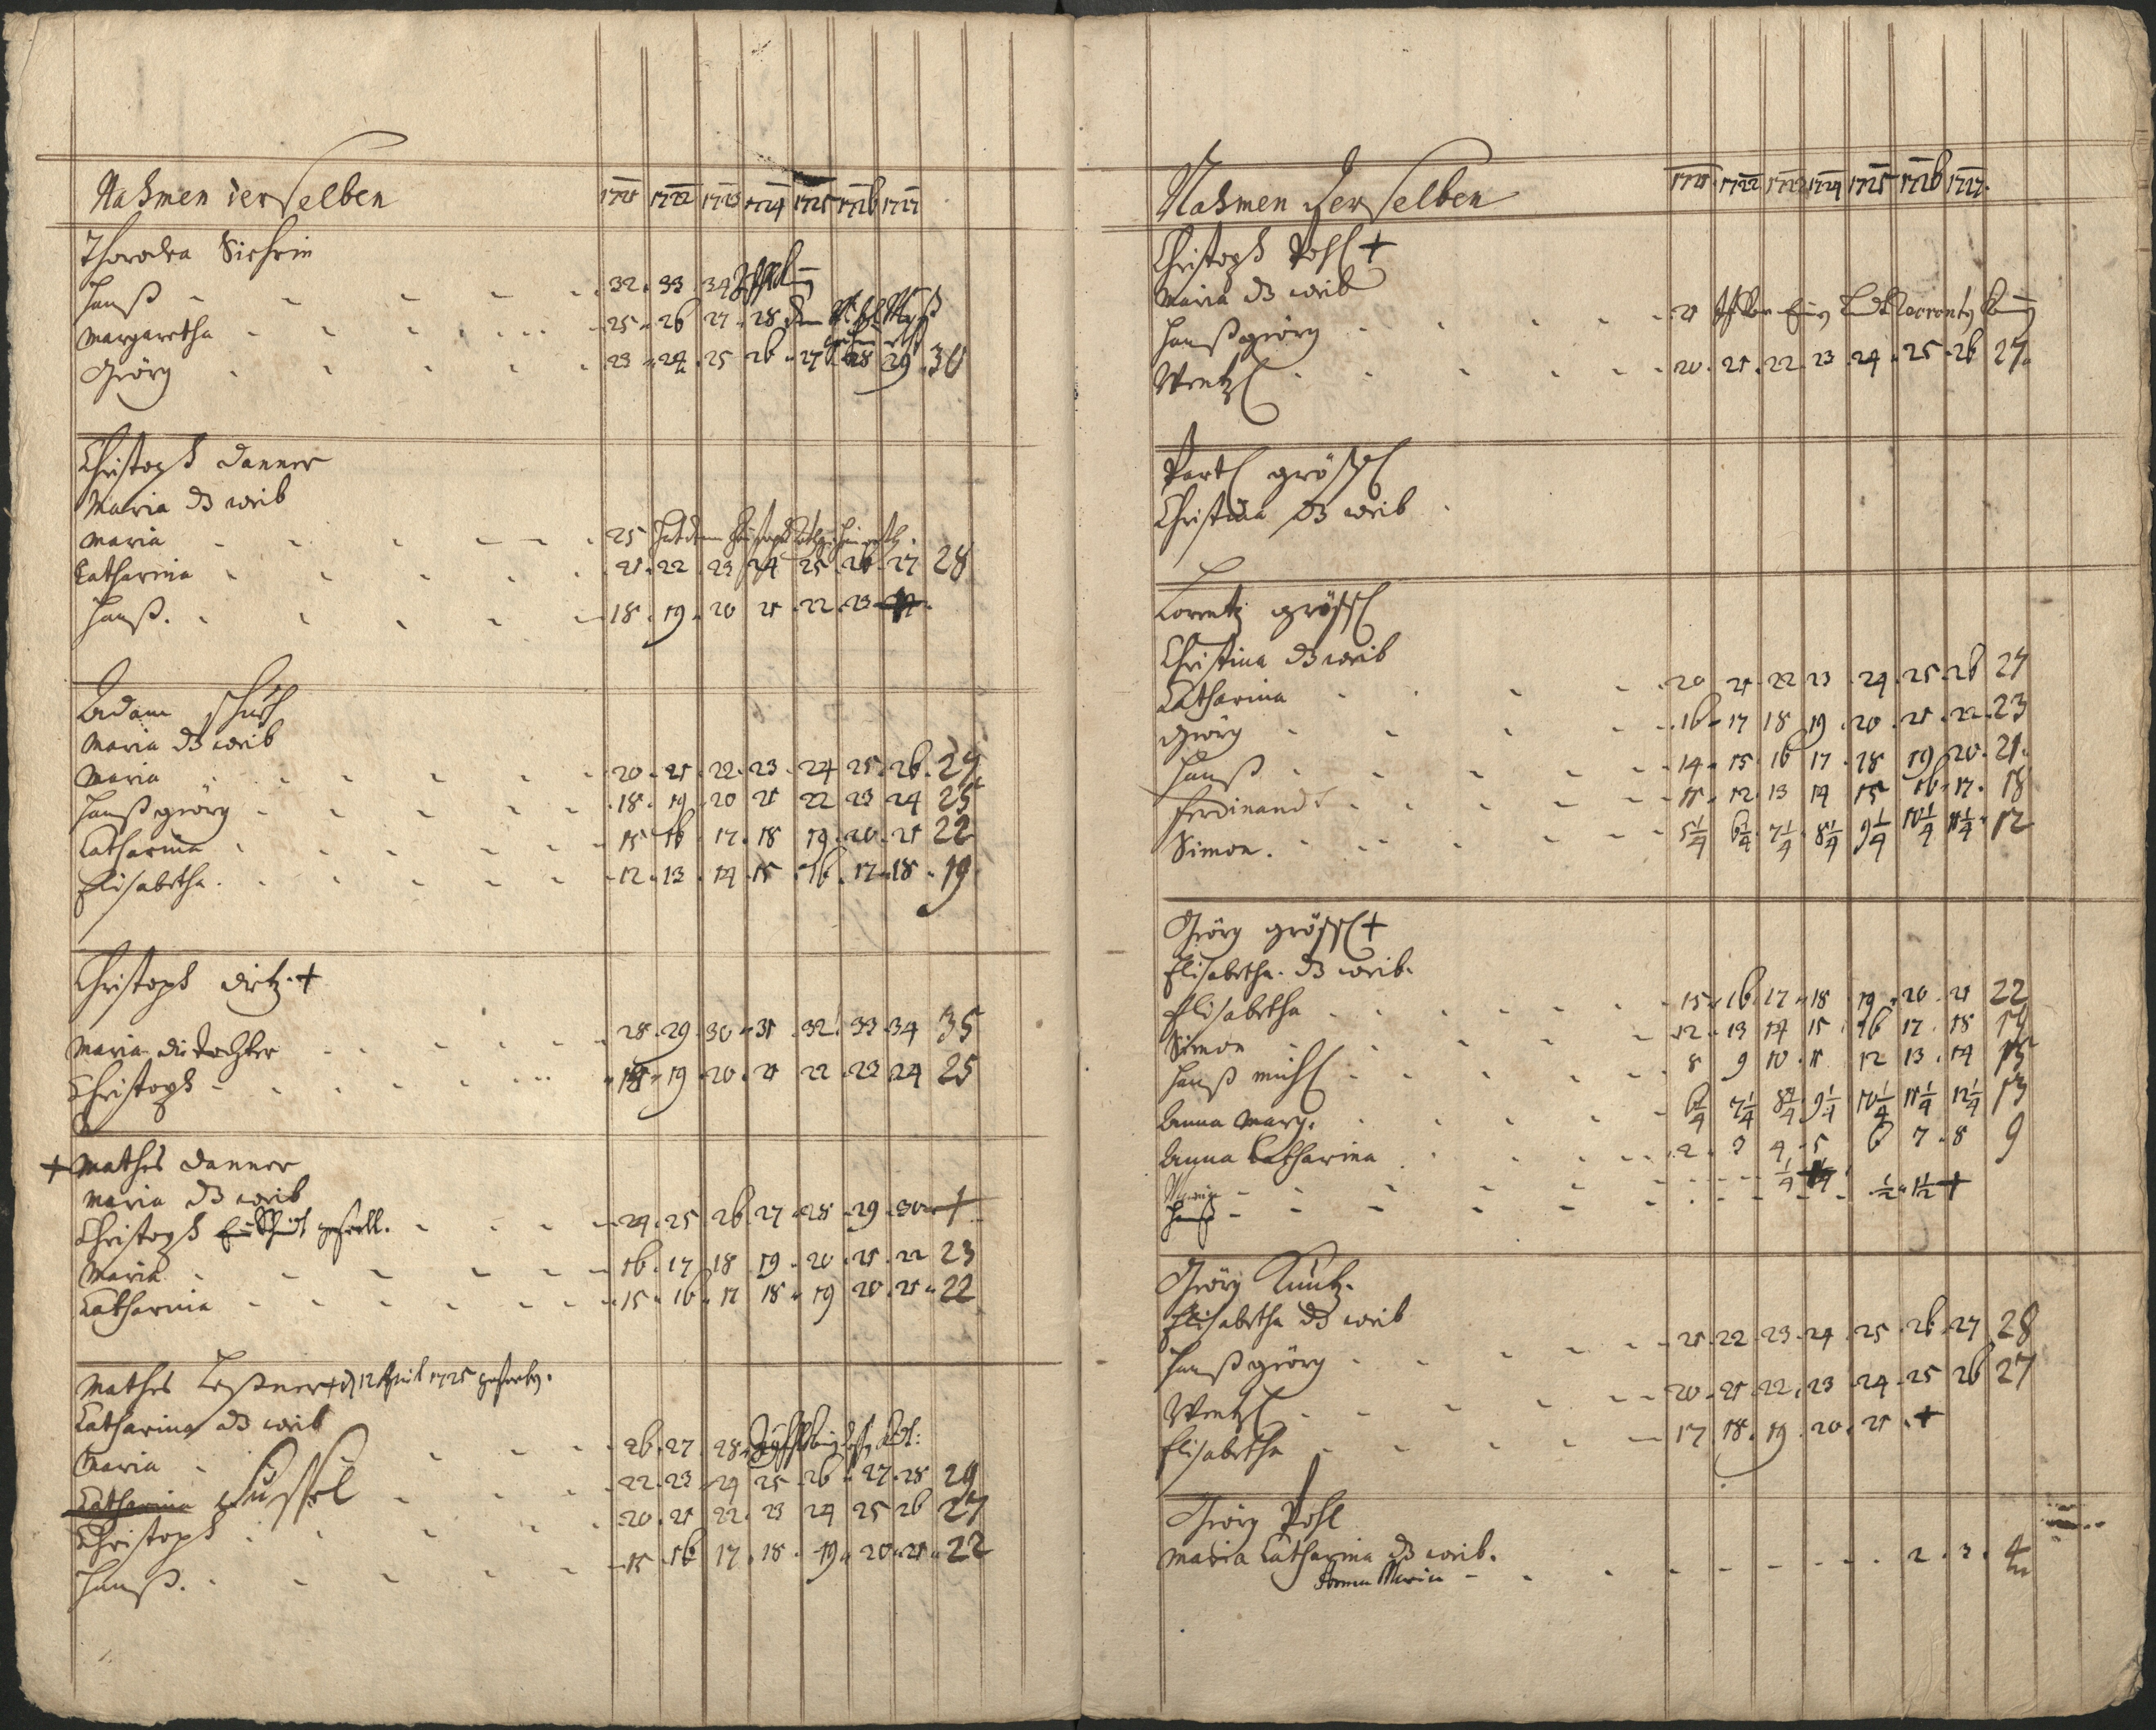 Nahmen derselben 1721 1722 1723 1724 1725 1726 1727
Hanß 32 33 34
Margaretha 25 26 27 28
Georg 23 24 25 26 27 28 29 30
Christoph Danner
Maria ds weib
Maria 25
Catharina 21 22 23 24 25 26 27 28
Hanß 18 19 20 21 22 23
Adam
Maria ds weib
Maria 20 21 22 23 24 25 26 27
Hanß georg 18 19 20 21 22 23 24 25
Catharina 15 16 17 18 19 20 21 22
Elisabetha 12 13 14 15 16 17 18 19
Christoph Dietz +
Maria die Tochter 28 29 30 31 32 33 34 35
Christoph 18 19 20 21 22 23 24 25
+ Mathes Danner
Maria ds weib
Christoph 24 25 26 27 28 29 30 +
Maria 16 17 18 19 20 21 22 23
Catharina 15 16 17 18 19 20 21 22
Mathes Leßner + d 12 April 1725
Catharina ds weib
Maria 26 27 28
Catharina 22 23 24 25 26 27 28 29
Christoph 20 21 22 23 24 25 26 27
Hanß 15 16 17 18 19 20 21 22
Nahmen Derselben 1721 1722 1723 1724 1725 1726 1727
Christoph Pohl +
Maria ds weib
Hanß georg 21
Wentzl 20 21 22 23 24 25 26 27
Bartl größl
Christina ds weib
Lorentz größl
Christina ds weib
Catharina 20 21 22 23 24 25 26 27
Georg 16 17 18 19 20 21 22 23
Hanß 14 15 16 17 18 19 20 21
Ferdinand 11 12 13 14 15 16 17 18
Simon 5¼ 6¼ 7¼ 8¼ 9¼ 10¼ 11¼ 12
Georg größl +
Elisabetha ds weib
Elisabetha 15 16 17 18 19 20 21 22
Simon 12 13 14 15 16 17 18 19
Hanß michl 8 9 10 11 12 13 14 15
Anna Marg. 6¼ 7¼ 8¼ 9¼ 10¼ 11¼ 12¼ 13
Anna Catharina 2 3 4 5 6 7 8 9
Hanß ½ 1½ +
Georg
Elisabetha ds weib
Hanß georg 21 22 23 24 25 26 27 28
Wentzl 20 21 22 23 24 25 26 27
Elisabetha 17 18 19 20 21 +
Georg Pohl
Maria Catharina ds weib
Anna Maria 2 3 4